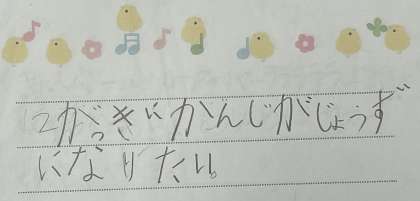 2がっきにかんじがじょうず
になりたい。